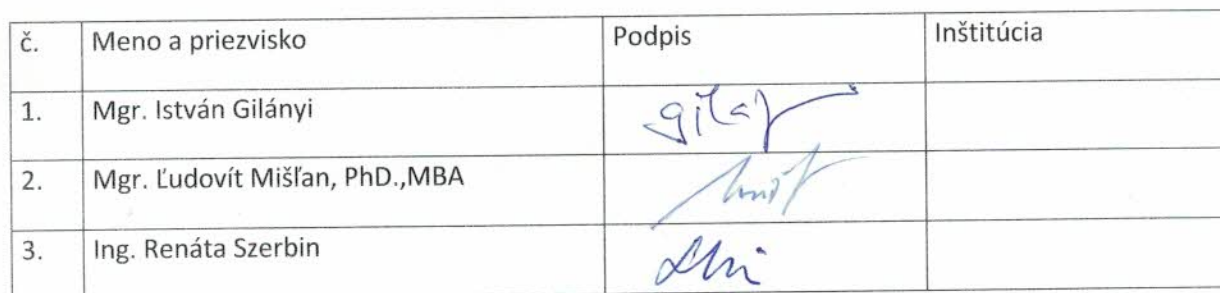 č. Meno a priezvisko Podpis Inštitúcia
1. Mgr. István Gilányi
2. Mgr. Ľudovít Mišľan, PhD.,MBA
3. Ing. Renáta Szerbin